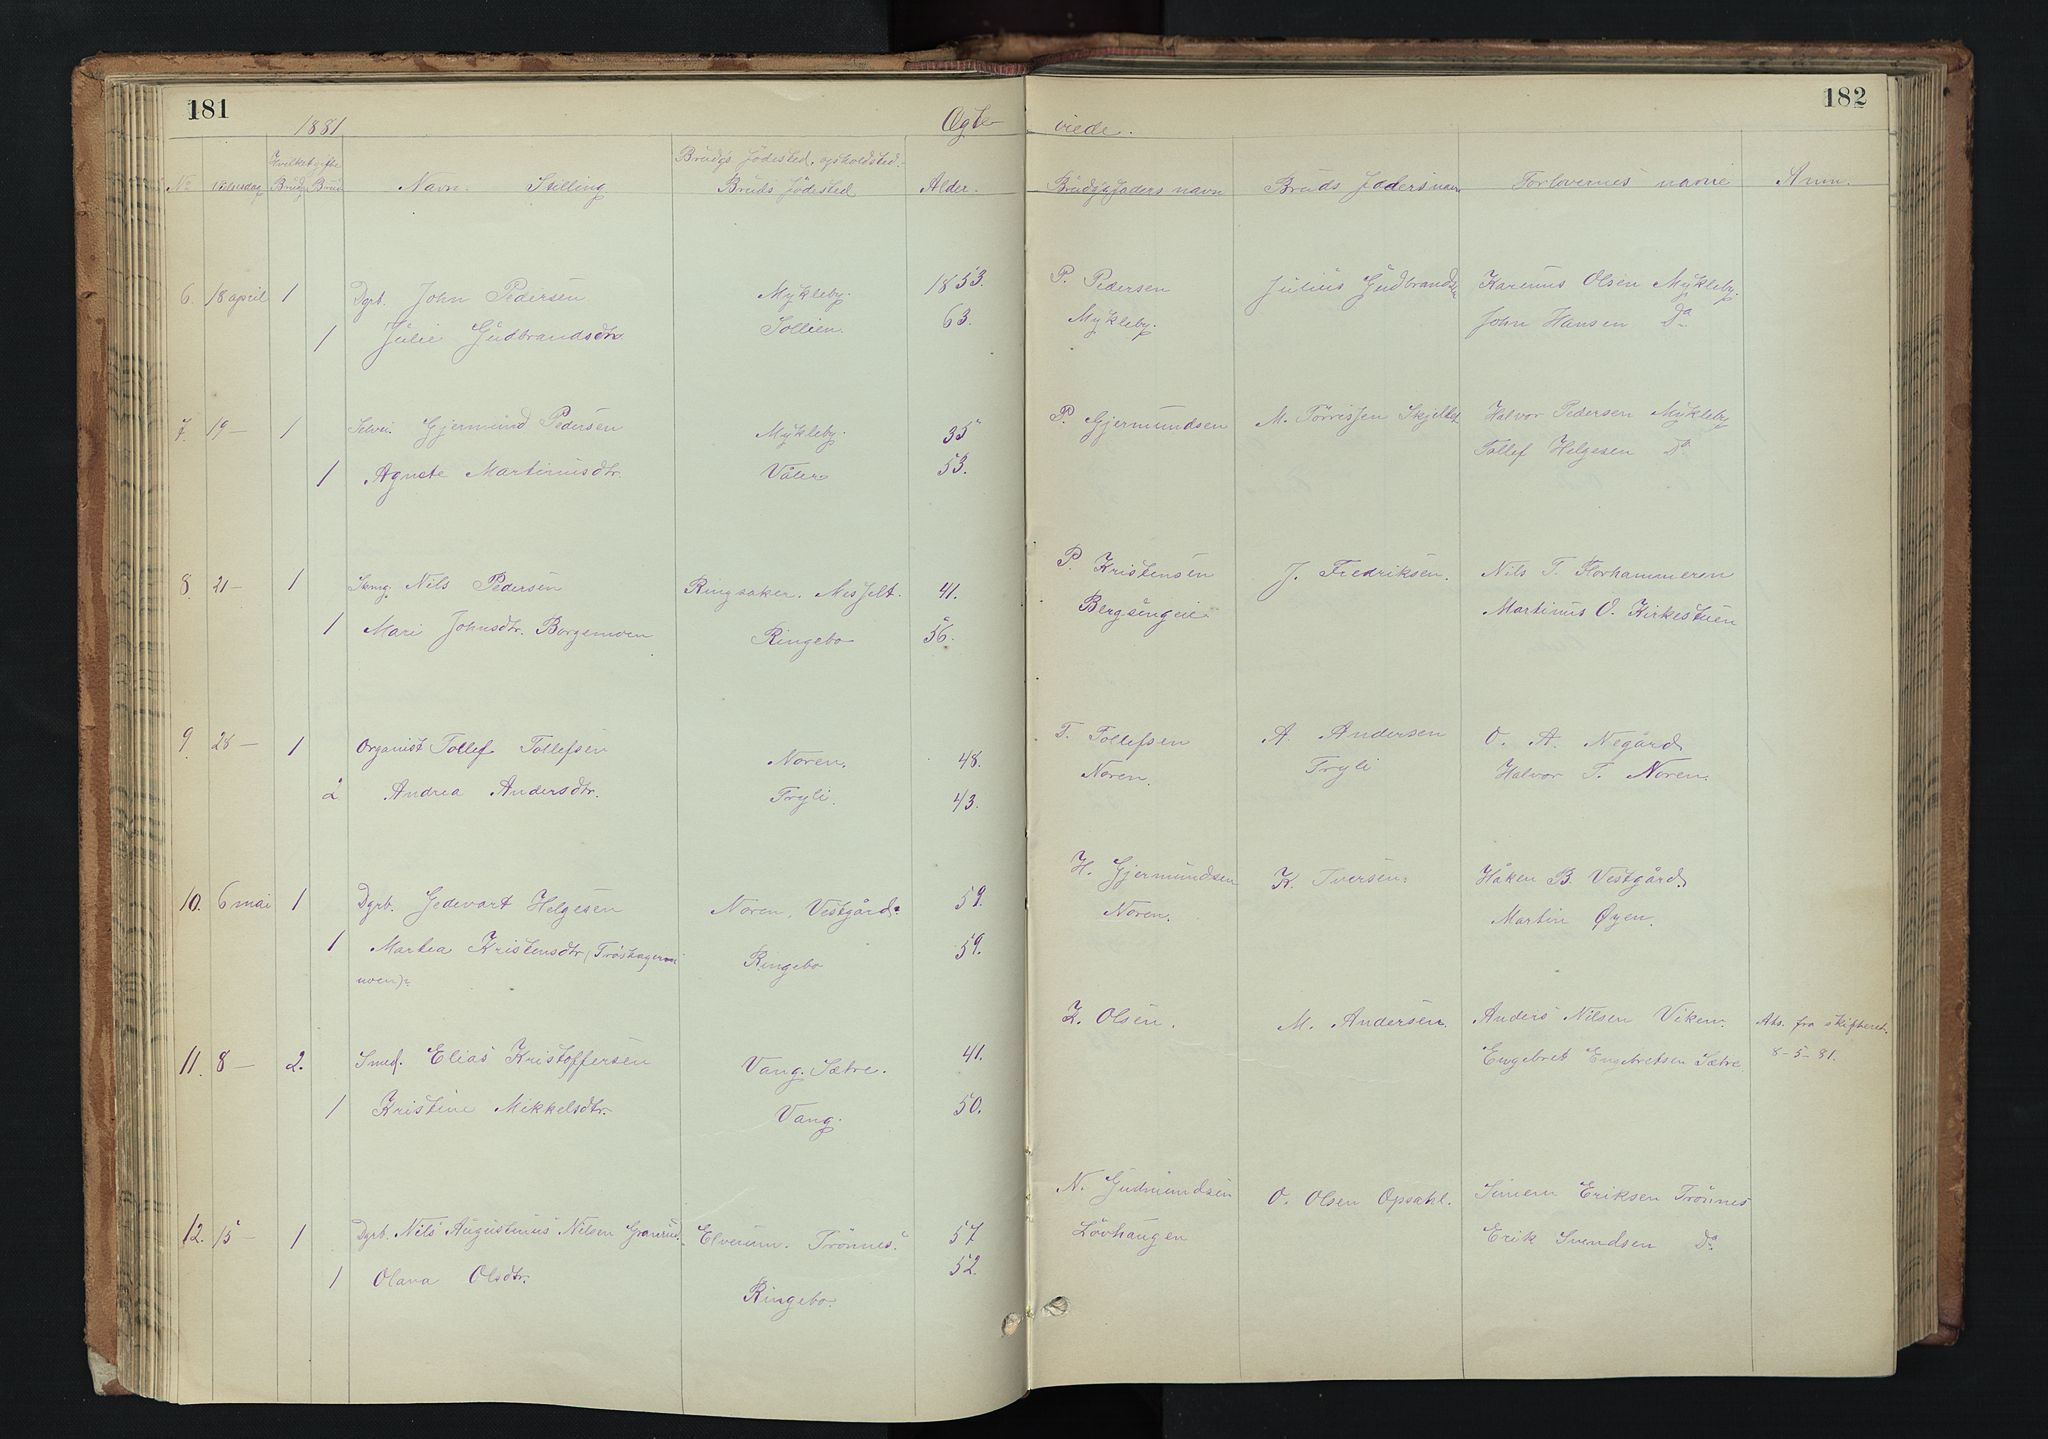 181
1881
Ægte
viede.
182
Hvilket gifte
Brudgs födested, opholdsted.
No
Vielsesdag
Brudg
Brud
Navn. Stilling
Bruds födested
Alder.
Brudgs faders navn
Bruds faders navn
Forlovernes navne
Anm.
6. 18 april 1 Dgrb. John Pedersen Mykleby. 1853. P. Pedersen Julius Gudbrandsen Karenus Olsen Mykleby.
1 Julie Gudbrandsdtr. Sollien. 63. Mykleby. John Hansen Do
7. 19 — 1 Selvei. Gjermund Pedersen Mykleby. 35 P. Gjermundsen M. Törrissen Skjellet Halvor Pedersen Mykleby
1 Agnete Martinusdtr. Våler 53. Tollef Helgesen Do
8 21 — 1 Skmg. Nils Pedersen Ringsaker. Messelt. 41. P. Kristensen J. Fredriksen. Nils T. Storhammeren
1 Mari Johnsdtr. Borgemoen Ringebo 56. Bergsengeie Martinus O. Kirkestuen
9 28 — 1 Organist Tollef Tollefsen Noren. 48. T. Tollefsen A Andersen O. A. Negård
2 Andrea Andersdtr. Tryli. 43. Noren. Tryli Halvor T. Noren.
10. 6 mai 1 Dgrb. Gedevart Helgesen Noren, Vestgård. 59. H. Gjermundsen K. Iversen. Håken B. Vestgård.
1 Martea Kristensdtr. (Tröshager- Ringebo 59. Noren. Martin Øyen.
moen).
11. 8 — 2. Smed. Elias Kristoffersen Vang. Sætre. 41. K. Olsen. M. Andersen. Anders Nilsen Viken. Ats. fra skifteret.
1 Kristine Mikkelsdtr. Vang. 50. Engebret Engebretsen Sætre. 8-5-81.
12. 15 — 1 Dgrb. Nils Augustinus Nilsen Granrud. Elverum. Trönnes. 57 N. Gudmundsen O. Olsen Opsahl. Simen Eriksen Trönnes
1 Olava Olsdtr. Ringebo. 52. Lövhaugen Erik Svendsen Do